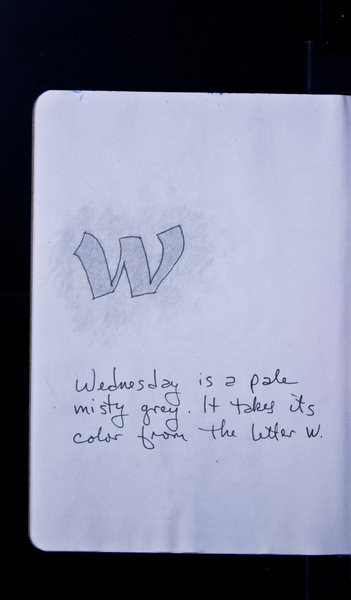 W
Wednesday is a pale
misty grey. It takes its
color from the letter W.